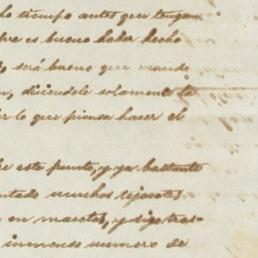 lo tiempo antes que tengan
bre es bueno haber hecho
, será bueno que viendo
n, diciendole solamente te
er lo que piensa hacer el
re este punto, y ya bastante
ntado muchos
en macetas, y
inmenso numero de